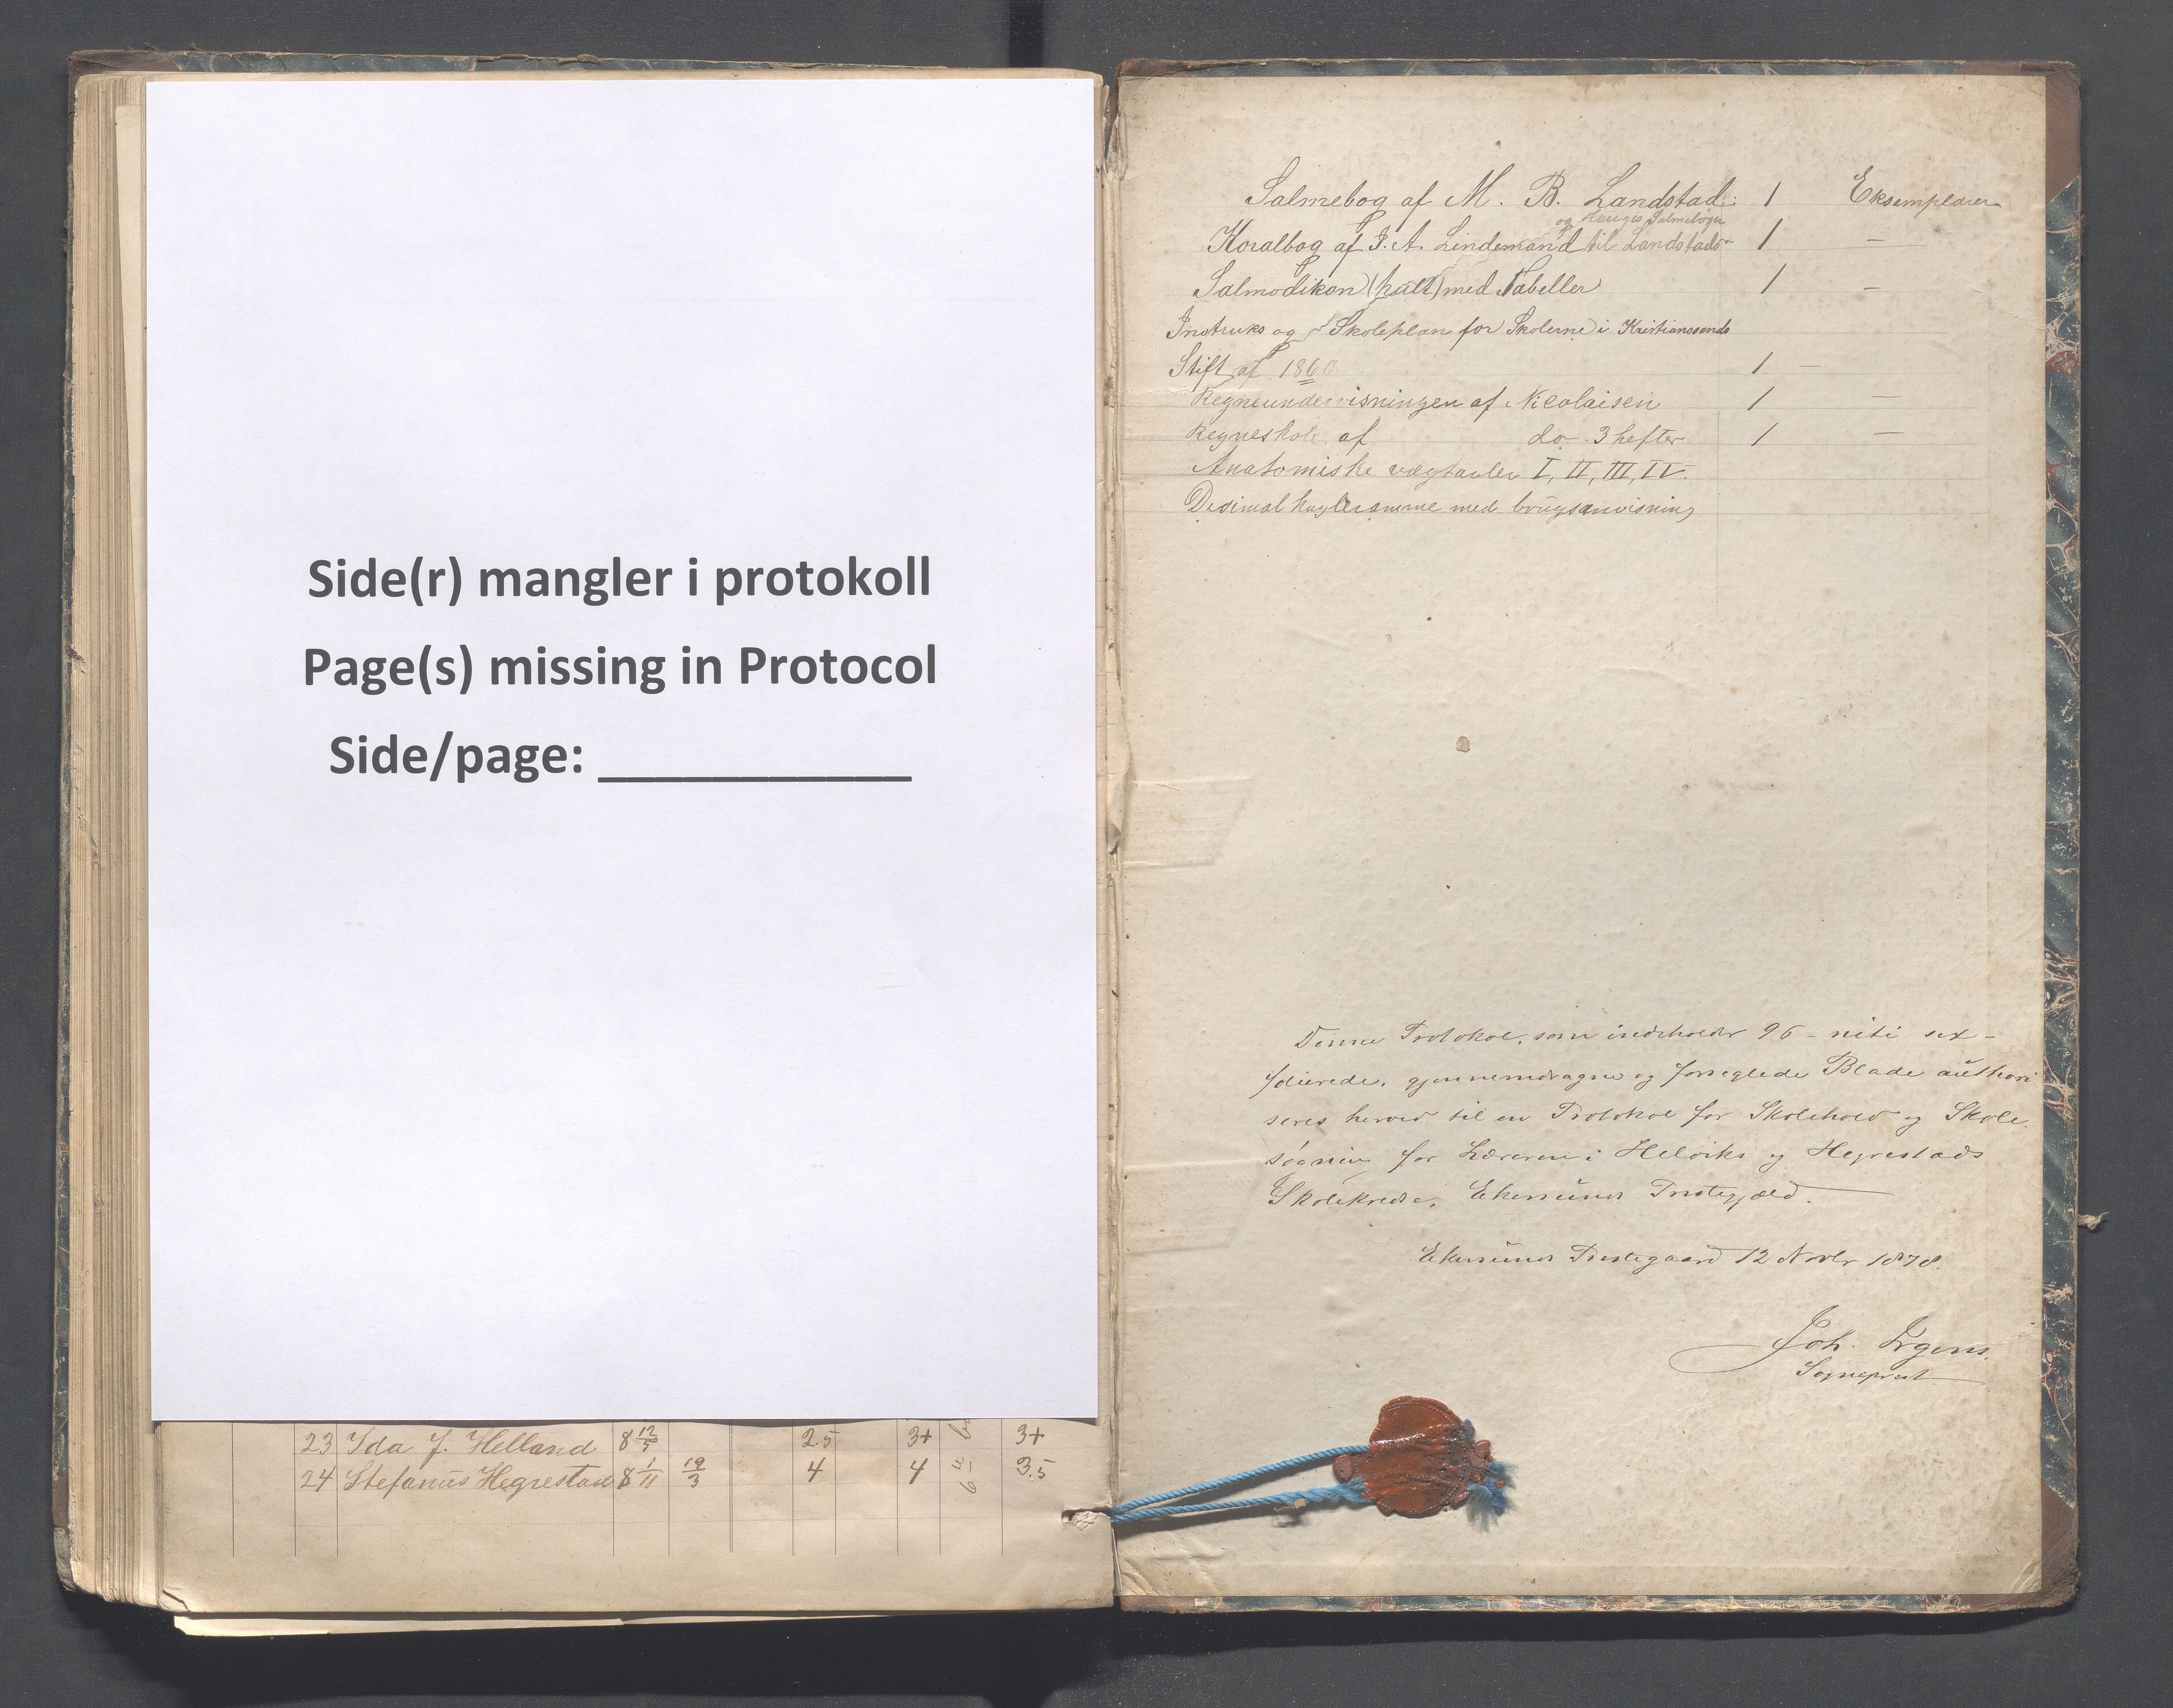 Side(r) mangler i protokoll
Page(s) missing in Protocol
Side/page: ____________
23 Ida J. Helland 8 12/5 25 3+ 3+
24 Stefanus Hegrestad 8 1/11 19/3 4 4 3.5
Salmebog af M. B. Landstad: 1 Eksemplarer
og Hauges Salmebøger
Koralbog af J. A. Lindemand til Landstads 1 —
Salmodikon (helt) med Tabeller 1 —
Instruks og Skoleplan for Skolerne i Kristianssands
Stift af 1860 1. —
Regneundervisningen af Nicolaisen 1 —
Regneskole af do 3 hefter 1 —
Anatomiske vægtavler I, II, III, IV.
Desimal kugleramme med brugsanvisning
Denne Protokol, som indeholder 96 - niti sex -
folierede, gjennemdragne og forseglede Blade authori
seres herved til en Protokol for Skolehold og Skole
søgning for Læreren i Helviks og Hegrestads
Skolekredse, Ekersunds Præstegjæld.
Ekersunds Præstegaard 12 Novbr 1878.
Joh. Irgens.
Sognepræst